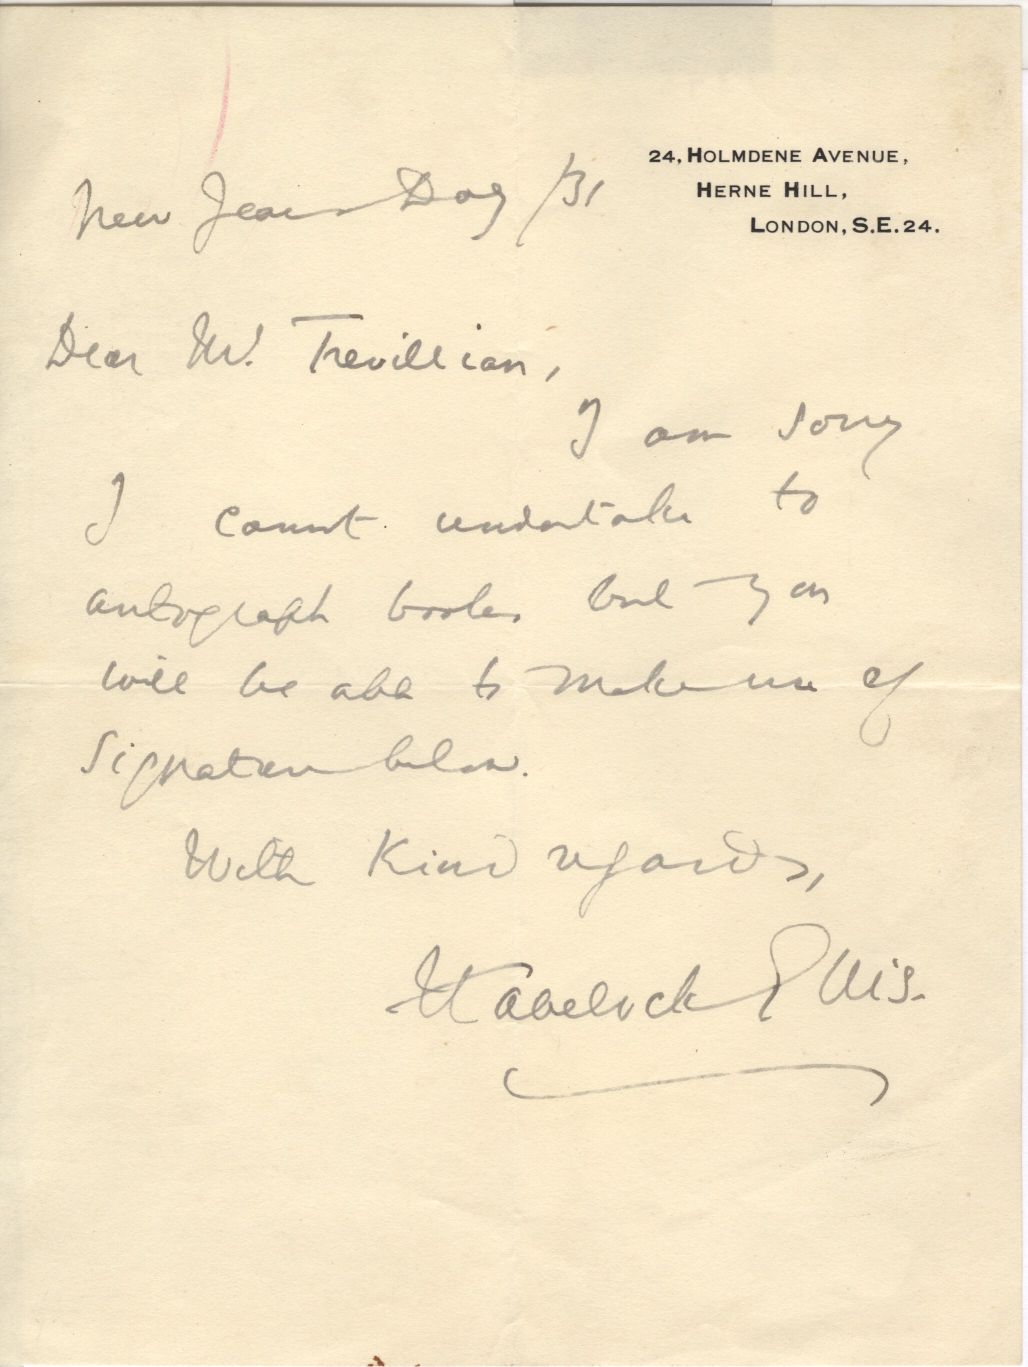 24, HOLMDENE AVENUE,
HERNE HILL,
LONDON, S.E.24.
New Years Day /31
Dear Mr. Trevillian,
I am sorry
I cannot undertake to
autograph books but you
will be able to make use of
signature below.
With kind regards,
Havelock Ellis.